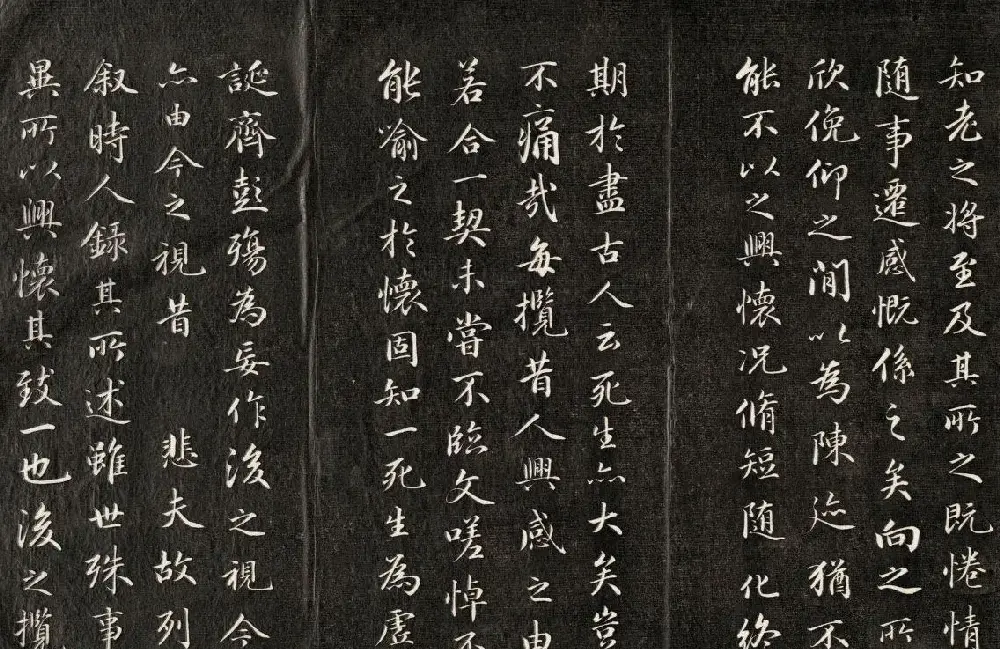 知老之将至及其所之既惓情
随事遷感慨係之矣向之所
欣俛仰之閒以為陳迹猶不
能不以之興懷况脩短随化終
期於盡古人云死生亦大矣豈
不痛哉每攬昔人興感之由
若合一契未嘗不臨文嗟悼不
能喻之於懷固知一死生為虚
誕齊彭殤為妄作後之視今
亦由今之視昔 悲夫故列
叙時人録其所述雖世殊事
異所以興懷其致一也後之攬